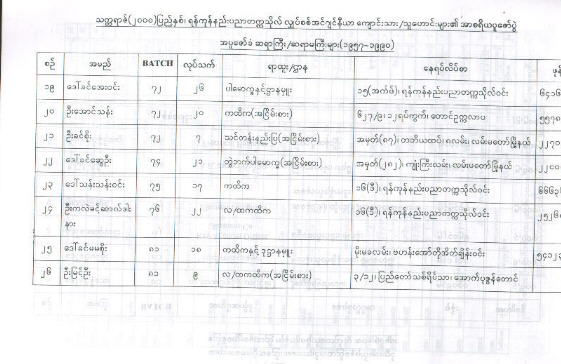 သက္ကရာဇ်(၂၀၀၀)ပြည့်နှစ်၊ ရန်ကုန်နည်းပညာတက္ကသိုလ် လျှပ်စစ်အင်ဂျင်နီယာ ကျောင်းသား/သူဟောင်းများ၏ အာစရိယပူဇော်ပွဲ
အပူဇော်ခံ ဆရာကြီး/ဆရာမကြီးများ(၁၉၅၇-၁၉၉၀)
စဉ် အမည် BATCH လုပ်သက် ရာထူး/ဌာန နေရပ်လိပ်စာ ဖုန်
၁၉ ဒေါ်ခင်အေးဝင်း ၇၂ ၂၆ ပါမောက္ခနှင့်ဌာနမှူး ၁၅(အက်ဖ်)၊ ရန်ကုန်နည်းပညာတက္ကသိုလ်ဝင်း ၆၄၁၆
၂၀ ဦးအောင်သန်း ၇၂ ၂၀ ကထိက(အငြိမ်းစား) ၆၂၇/၉၊ ၁၂ရပ်ကွက်၊ တောင်ဥက္ကလာပ ၅၅၇၈
၂၁ ဦးခင်စိုး ၇၂ ၇ သင်တန်းနည်းပြ(အငြိမ်းစား) အမှတ်(၈၇)၊ တတိယထပ်၊ ၈လမ်း၊ လမ်းမတော်မြို့နယ် ၂၂၇၀
၂၂ ဒေါ်ခင်ဆွေဦး ၇၄ ၂၁ တွဲဘက်ပါမောက္ခ(အငြိမ်းစား) အမှတ်(၂၈၂)၊ ကျုံးကြီးလမ်း၊ လမ်းမတော်မြို့နယ် ၂၂၀၀
၂၃ ဒေါ်သန်းသန်းဝင်း ၇၅ ၁၇ ကထိက ၁၆(ဒီ)၊ ရန်ကုန်နည်းပညာတက္ကသိုလ်ဝင်း
၂၄ ၇၆ ၂၂ လ/ထကထိက ၁၆(ဒီ)၊ ရန်ကုန်နည်းပညာတက္ကသိုလ်ဝင်း ၂၅၂၆
နား
၂၅ ဒေါ်ခင်မမစိုး ၈၁ ၁၈ ကထိကနှင့် ဌာနမှူး မိုးမခလမ်း၊ ၅၄၁၂၃
၂၆ ဦးမြင့်ဦး ၈၁ ၉ လ/ထကထိက(အငြိမ်းစား) ၃/၁၂၊ ပြည်တော်သစ်ရိပ်သာ၊ အောက်ပုဇွန်တောင်